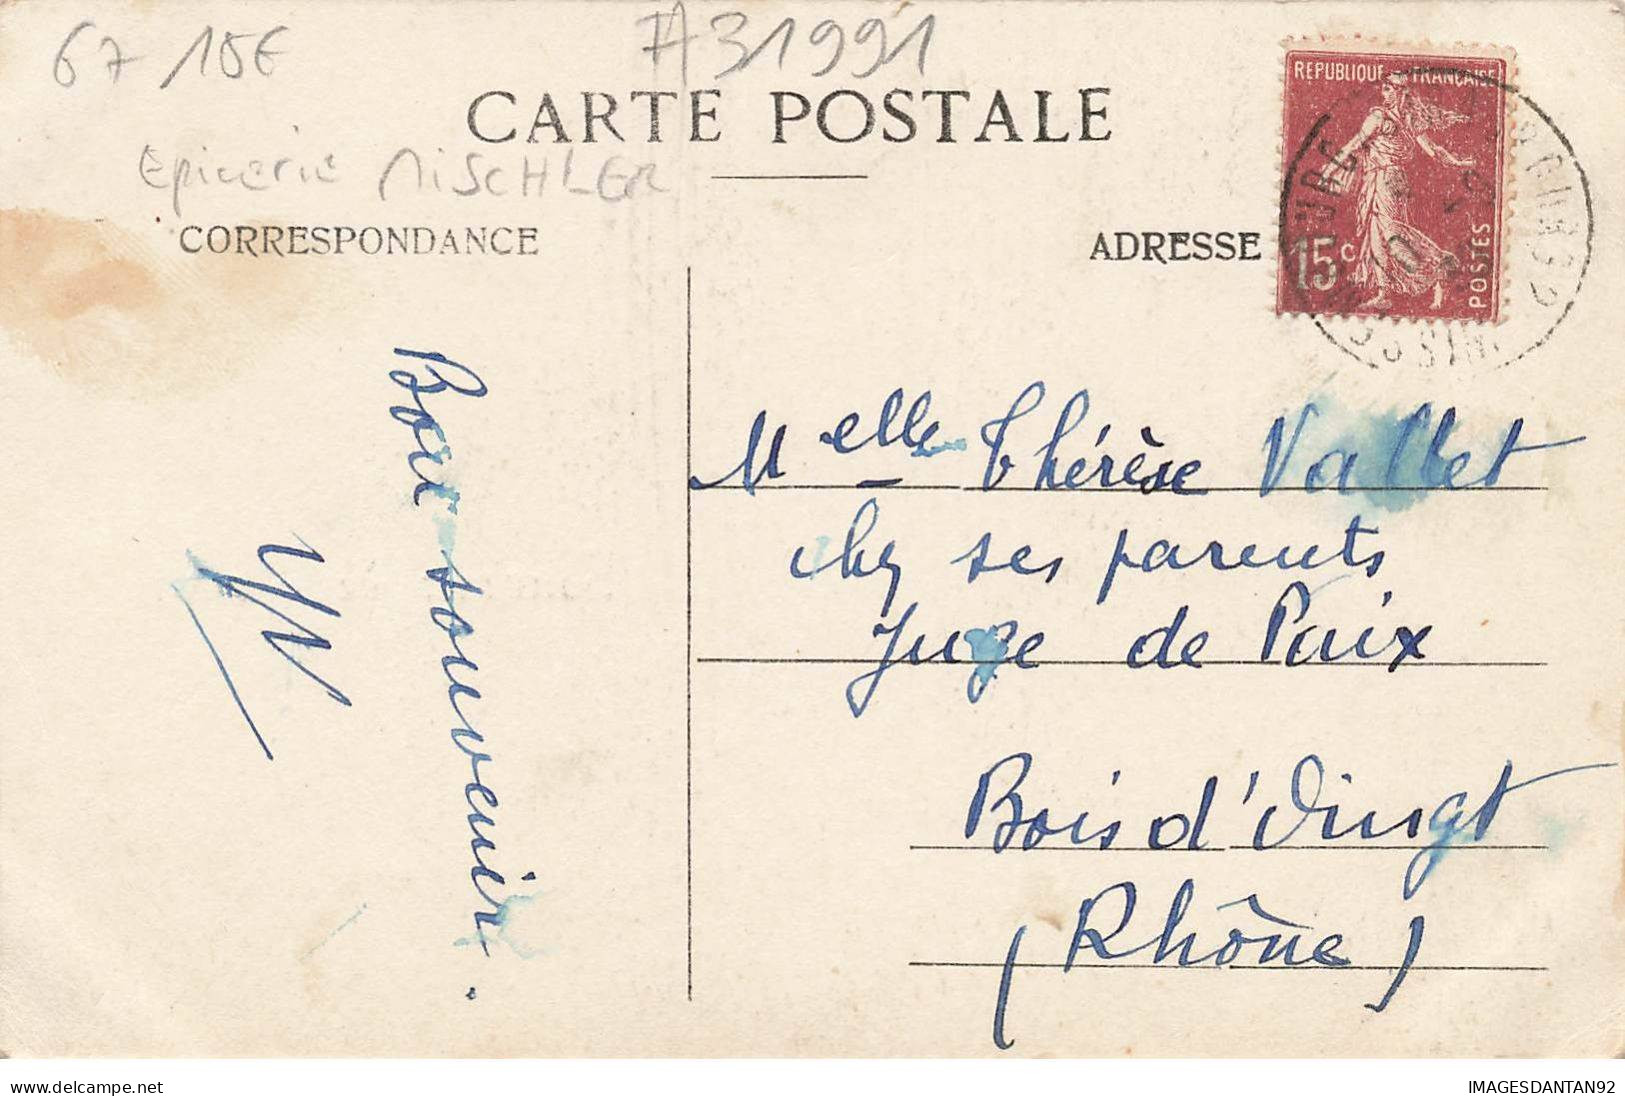 67 15€
A31991
CARTE POSTALE
Epicerie MISCHLER
CORRESPONDANCE
ADRESSE
REPUBLIQUE FRANCAISE
15c
POSTES
Bon souvenir.
Melle Thérèse Vallet
chez ses parents
Juge de Paix
Bois d'Oingt
(Rhône)
www.delcampe.net
IMAGESDANTAN92